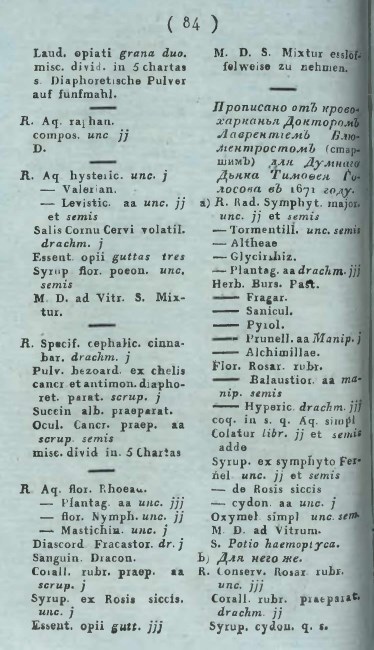 ( 84 )
Laud. opiati grana duo.
misc. divid. in 5 chartas
s. Diaphoretische Pulver
auf fünfmahl.
R. Aq. raphan.
compos. unc jj
D.
R. Aq. hysteric. unc. j
— Valerian.
— Levistic. aa unc. jj
et semis
Salis Cornu Cervi volatil.
drachm. j
Essent. opii guttas tres
Syrup flor. poeon. unc.
semis
M. D. ad Vitr. S. Mix-
tur.
R. Specif. cephalic. cinna-
bar. drachm. j
Pulv. bezoard. ex chelis
cancr. et antimon. diapho-
ret. parat. scrup. j
Succin alb. praeparat.
Ocul. Cancr. praep. aa
scrup. semis
misc. divid in. 5 Chartas
R Aq. flor. Rhoead.
— Plantag. aa unc. jjj
— flor. Nymph. unc. jj
— Mastichin. unc. j
Diascord Fracastor. dr. j
Sanguin. Dracon.
Corall. rubr. praep. aa
scrup. j
Syrup. ex Rosis siccis.
unc. j
Essent. opii gutt. jjj
M. D. S. Mixtur esslöf-
felweise zu nehmen.
Прописано отъ крово-
харканья Докторомъ
Лаврентіемъ Блю-
ментростомъ (стар-
шимъ) для Думнаго
Дьяка Тимофея Го-
лосова въ 1671 году.
a) R. Rad. Symphyt. major.
unc. jj et semis
— Tormentill. unc. semis
— Altheae
— Glycirrhiz.
— Plantag. aa drachm. jjj
Herb. Burs. Past.
— Fragar.
— Sanicul.
— Pyrol.
— Prunell. aa Manip. j
— Alchimillae.
Flor. Rosar. rubr.
— Balaustior. aa ma-
nip. semis
— Hyperic. drachm. jjj
coq. in s. q. Aq. simpl
Colatur libr. jj et semis
adde
Syrup. ex symphyto Fer-
nel unc. jj et semis
— de Rosis siccis
— cydon. aa unc. j
Oxymel simpl unc. sem.
M. D. ad Vitrum.
S. Potio haemoptyca.
b) Для него же.
R. Conserv. Rosar. rubr.
unc. jjj
Corall. rubr. praeparat.
drachm. jj
Syrup. cydon. q. s.